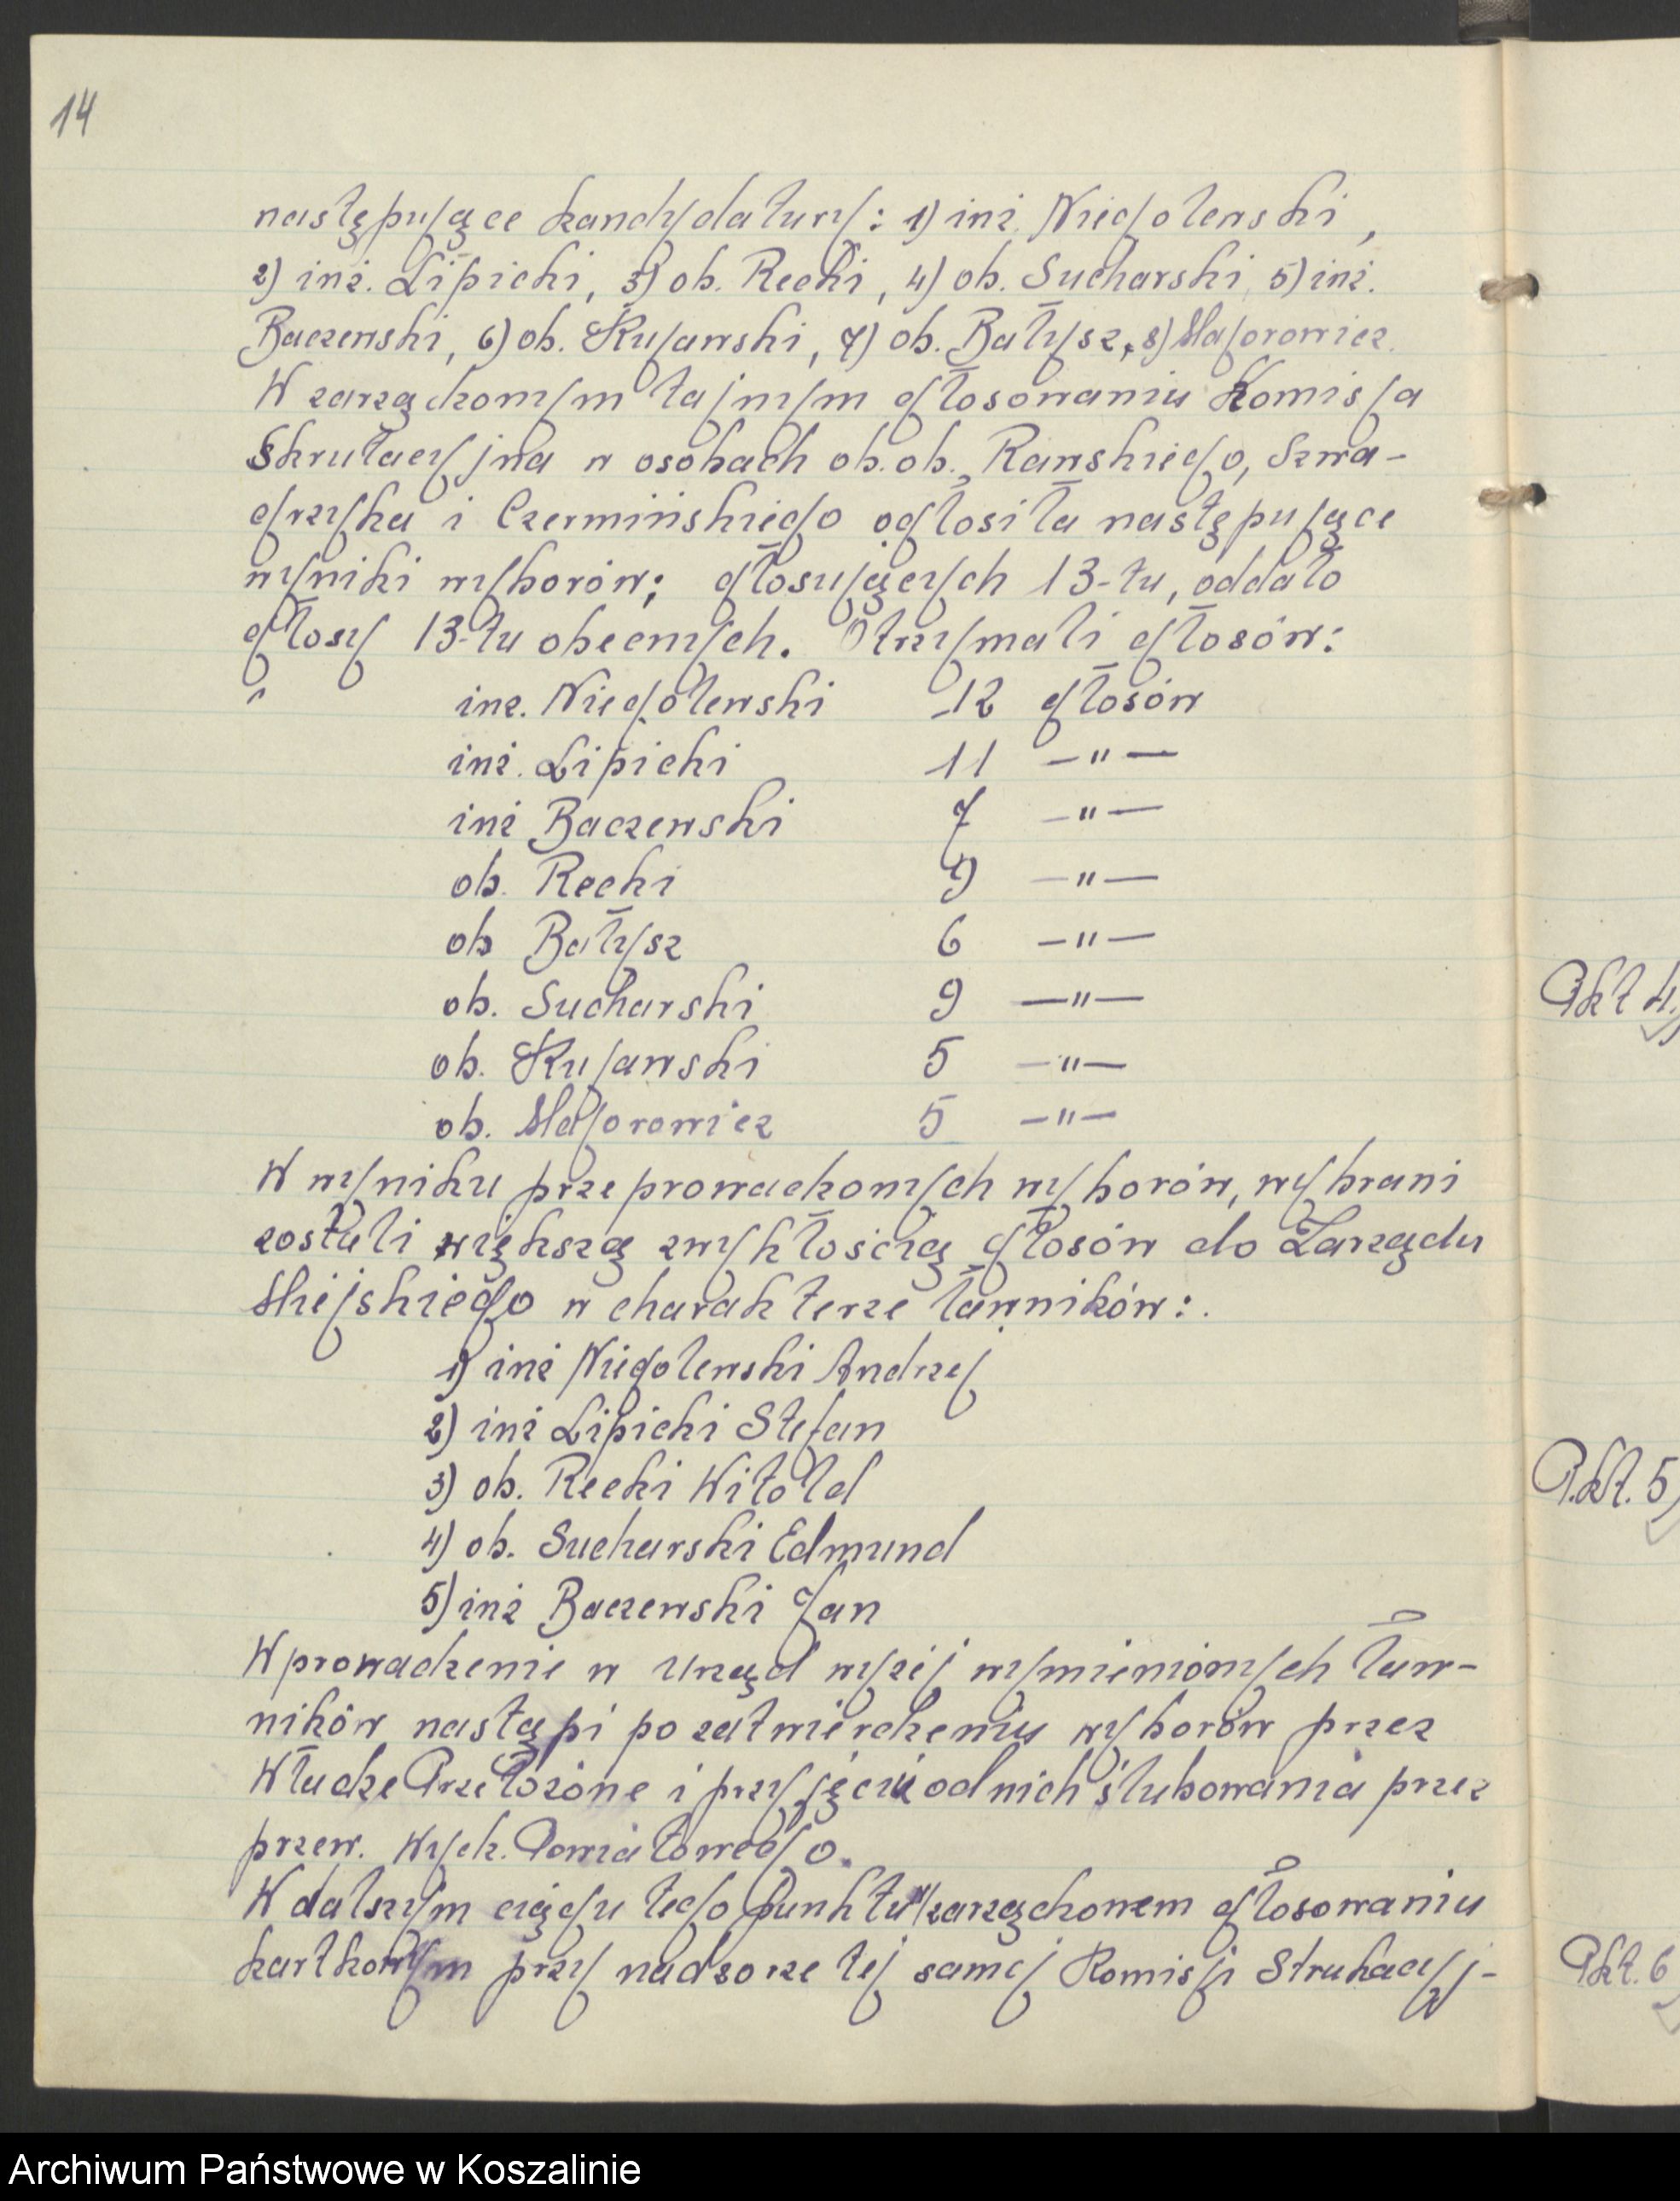 14
następujące kandydatury: 1) inż. Niegolewski,
2) inż. Lipicki, 3) ob. Recki, 4) ob. Sucharski, 5) inż.
Baczewski, 6) ob. Kujawski, 7) ob. Bałysz, 8) Majorowicz.
W zarządzonym tajnym głosowaniu Komisja
Skrutacyjna w osobach ob. ob. Rawskiego, Szwa-
grzyka i Czermińskiego ogłosiła następujące
wyniki wyborów; głosujących 13-tu, oddało
głosy 13-tu obecnych. Otrzymali głosów:
inż. Niegolewski 12 głosów
inż. Lipicki 11 —"—
inż Baczewski 7 —"—
ob. Recki 9 —"—
ob Bałysz 6 —"—
ob. Sucharski 9 —"—
ob. Kujawski 5 —"—
ob. Majorowicz 5 —"—
W wyniku przeprowadzonych wyborów, wybrani
zostali większą zwykłością głosów do Zarządu
Miejskiego w charakterze ławników:.
1) inż Niegolewski Andrzej
2) inż Lipicki Stefan
3) ob. Recki Witold
4) ob. Sucharski Edmund
5) inż Baczewski Jan
Wprowadzenie w Urząd wyżej wymienionych ław-
ników nastąpi po zatwierdzeniu wyborów przez
Władze Przełożone i przyjęciu od nich ślubowania przez
przew. Wydz. Powiatowego.
W dalszym ciągu tego punktu w zarządzonem głosowaniu
kartkowym przy nadzorze tej samej Komisji Strukacyj-
Pkt 4.
Pkt. 5)
Pkt. 6
Archiwum Państwowe w Koszalinie